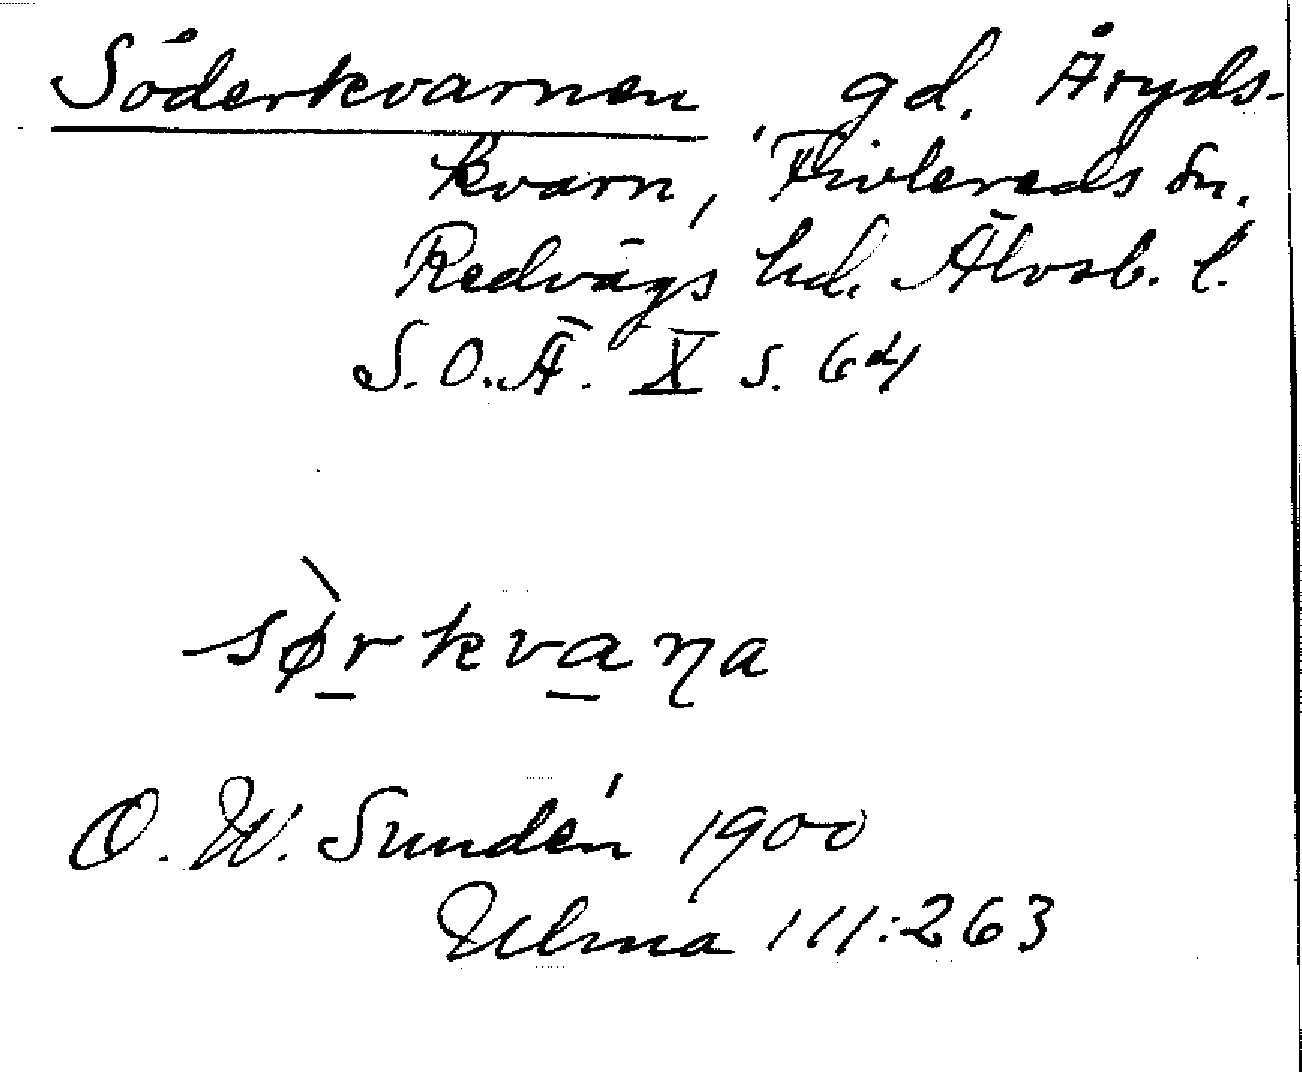 Söderkvarnen gd. Åryds-
kvarn, Fivlereds sn.
Redvägs hd. Älvsb. l.
S.O.Ä. X s. 64
sø̀rkvaɳa
O. W. Sundén 1900
Ulma 111:263